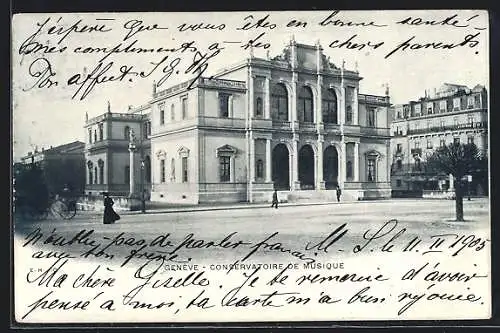 J'espère que vous êtes en bonne santé,
mes compliments à tes chers parents.
Ton affect
N'oublie pas de parler fran. M. S. Le 11 II 1905
avec ton frère
GENÈVE - CONSERVATOIRE DE MUSIQUE
Ma chère Giselle. Je te remercie d'avoir
pensé à moi, ta carte m'a bien réjouie.